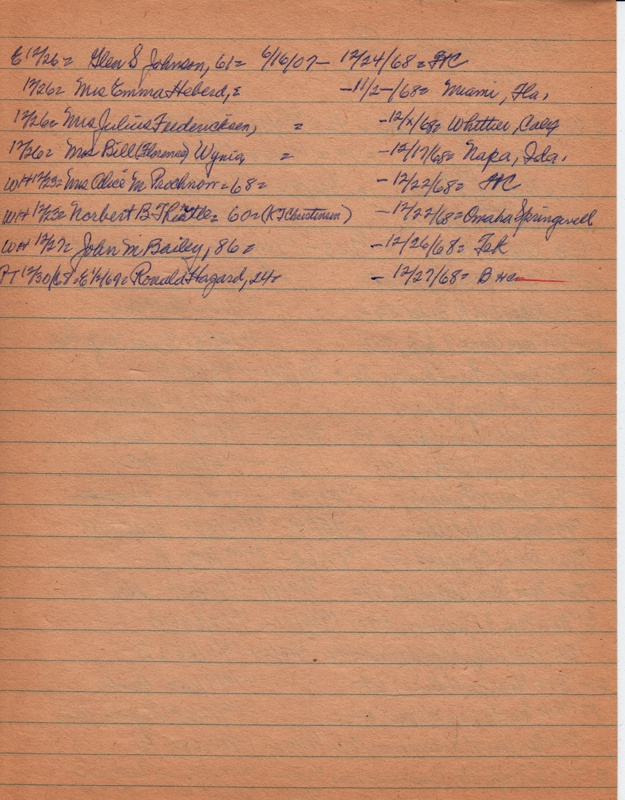 E 12/26= Glen S Johnson, 61= 6/16/07- 12/24/68= HC
12/26= Mrs Emma Heberd, = -11/2-/68= Miami, Fla.
12/26= Mrs Julius Fredericksen, = -12/ /68= Whittier, Calif
12/26= Mrs Bill (Florence) Wynia = -12/17/68= Napa, Ida.
WH 12/23= Mrs Alice M. Prochnow= 68= -12/22/68= HC
WH 12/23= Norbert B. Thistle= 60= (KJ Christensen) -12/22/68= Omaha Springwell
WH 12/27= John M Bailey, 86= -12/26/68= Tek
PT 12/30/68= E 1/2/69= Ronald Hazard, 24= - 12/27/68= B HC